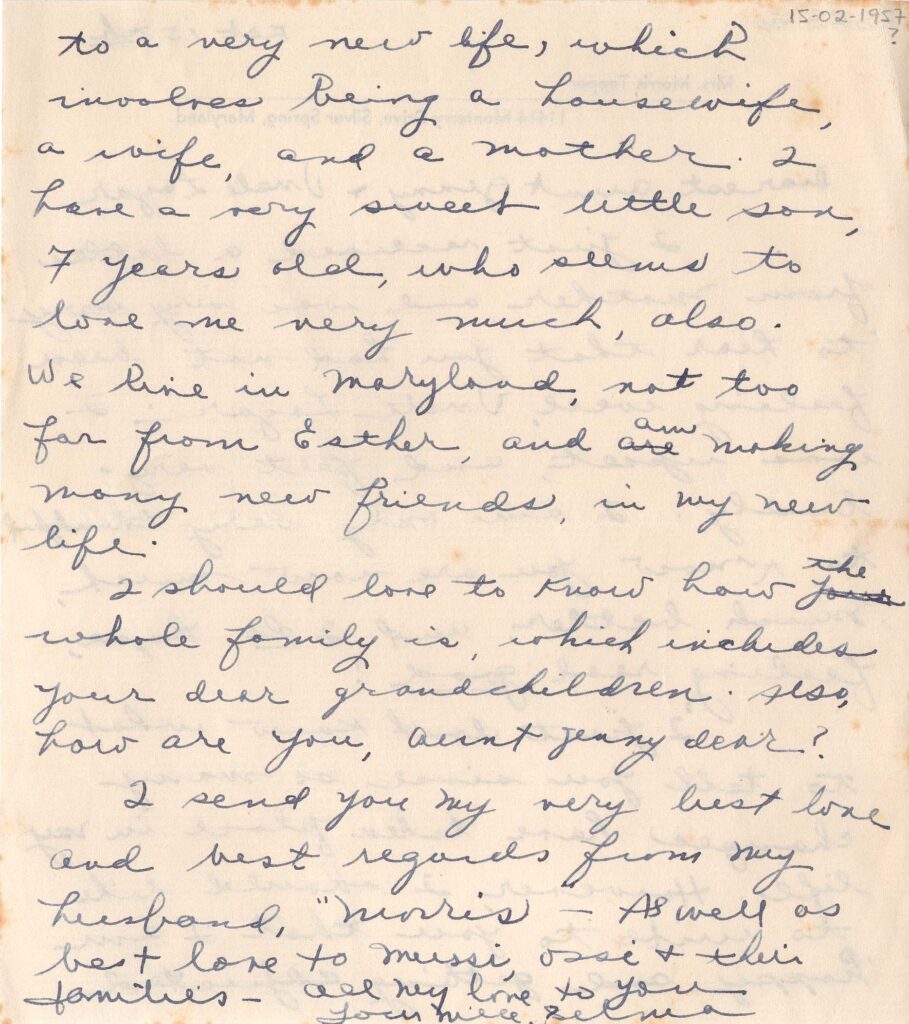 15-02-1957
?
to a very new life, which
involves being a housewife,
a wife, and a mother. I
have a very sweet little son,
7 years old, who seems to
love me very much, also.
We live in Maryland, not too
far from Esther, and are am making
many new friends, in my new
life.
I should love to know how your the
whole family is, which includes
your dear grandchildren. Also,
how are you, Aunt Jenny dear?
I send you my very best love
and best regards from my
husband, "Morris" – As well as
best love to Mussi, Ossi + their
families – All my love to you
Your niece, Selma